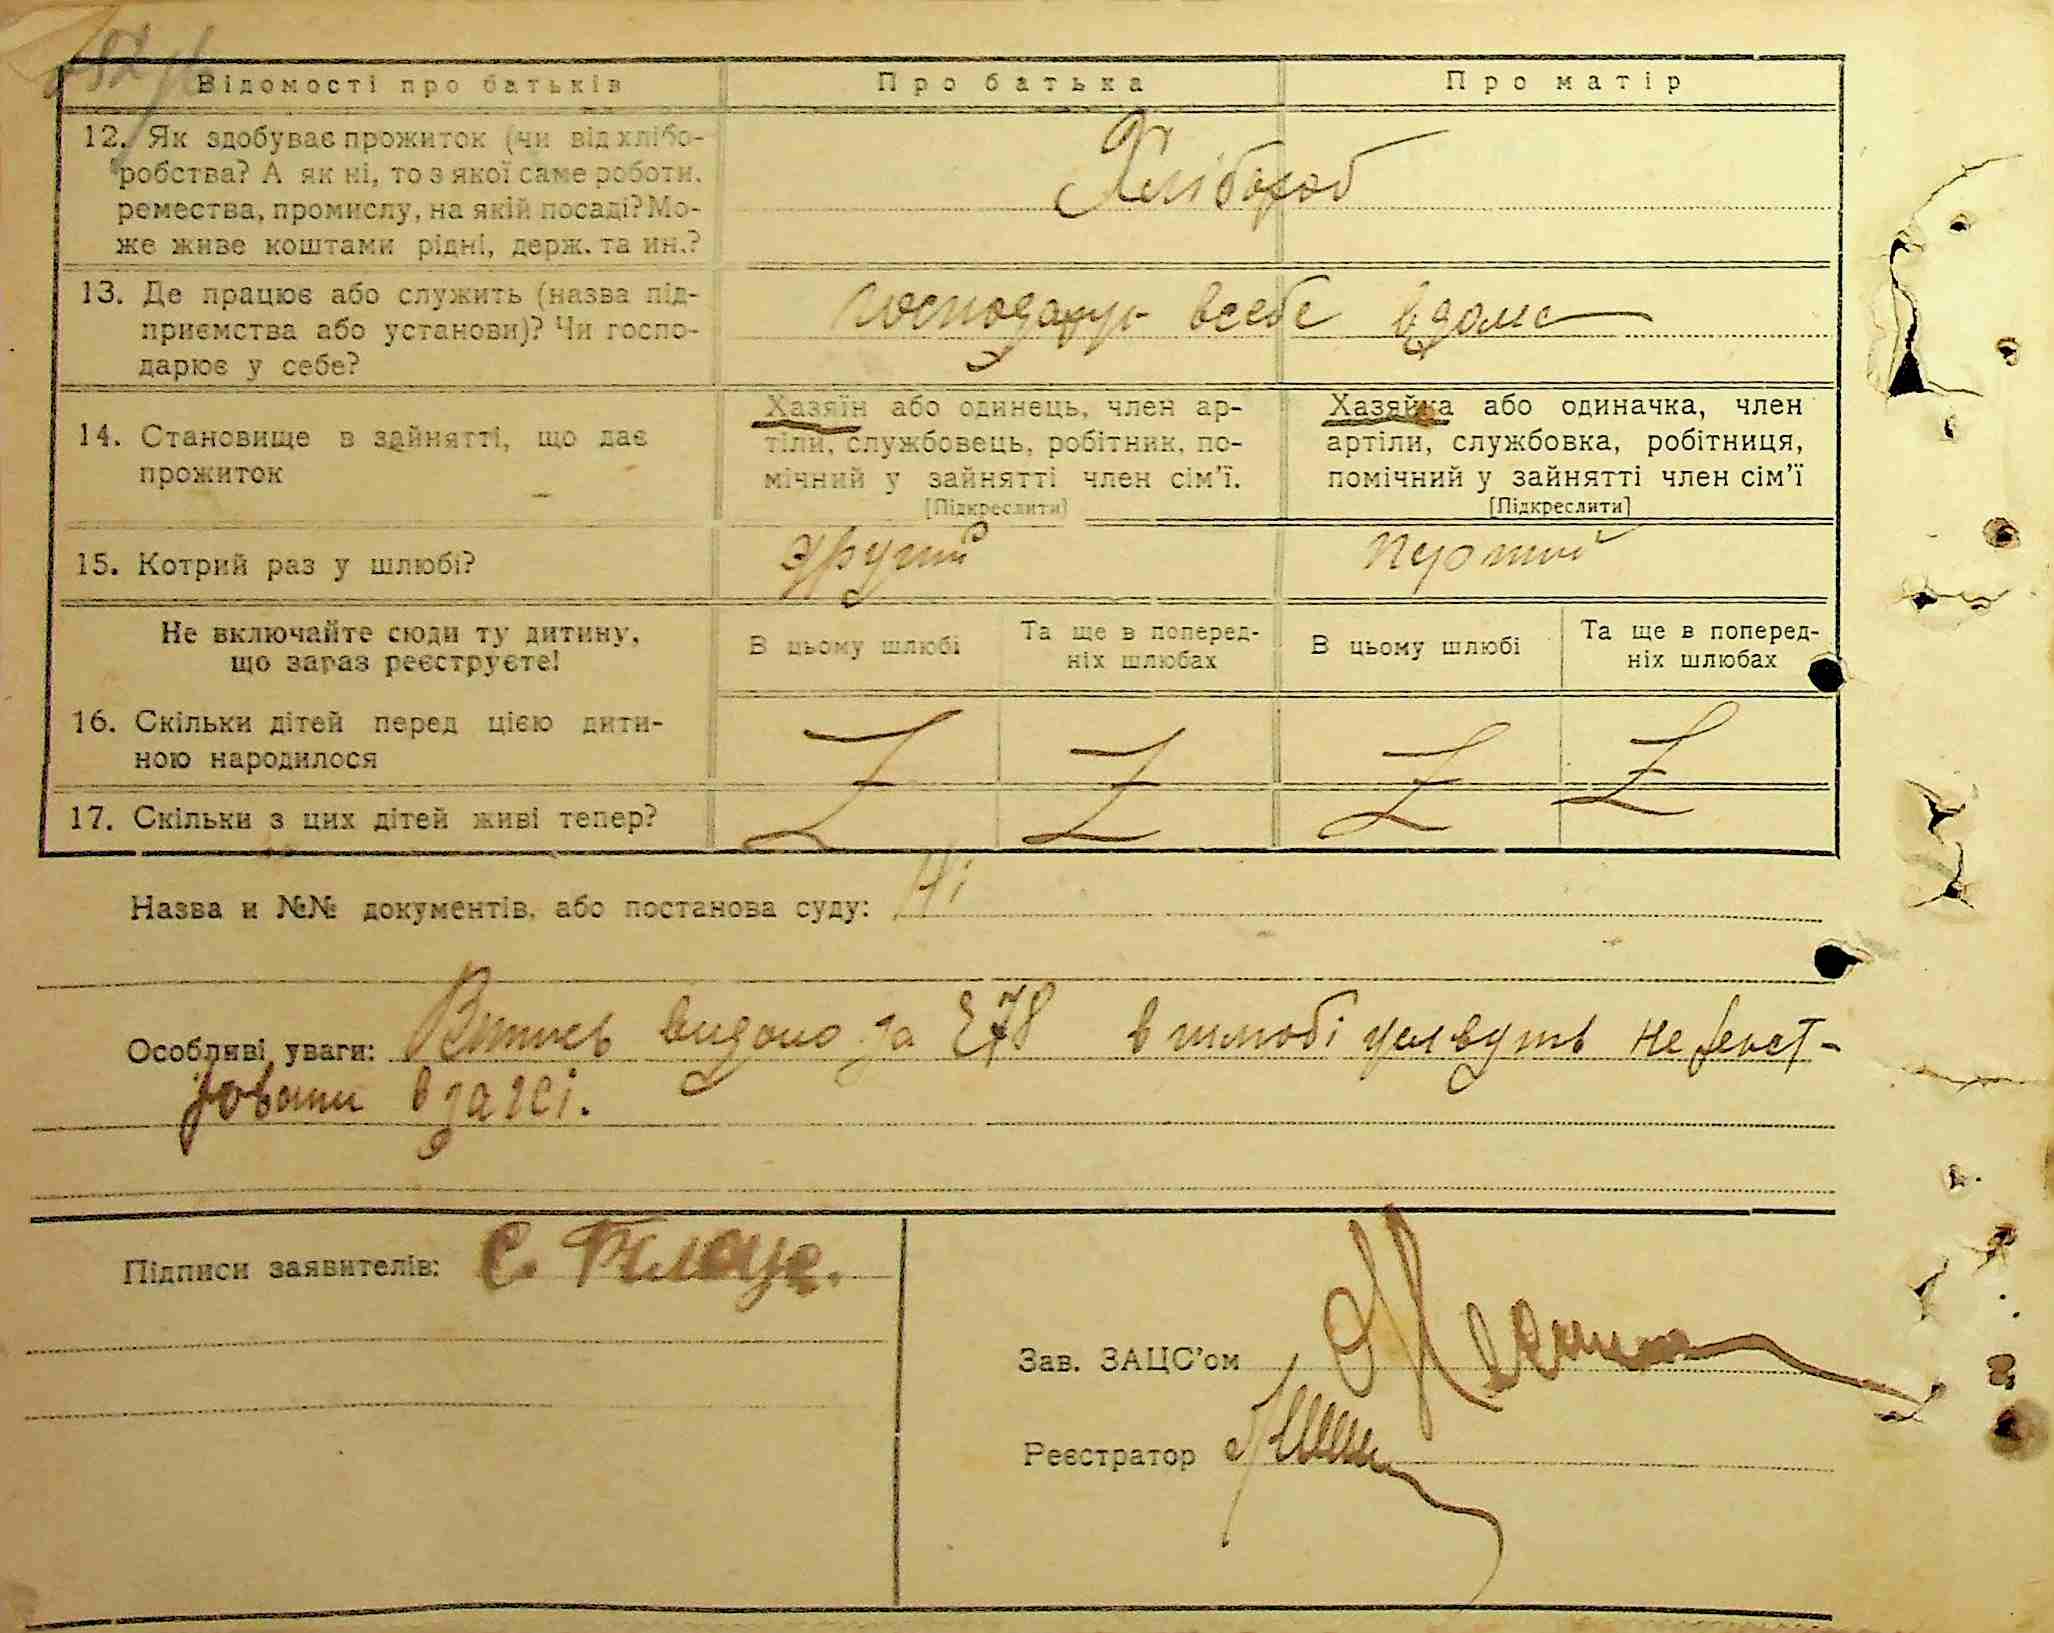 Відомості про батьків Про батька Про матір
12. Як здобуває прожиток (чи від хлібо-
робства? А як ні, то з якої саме роботи,
ремества, промислу, на якій посаді? Мо-
же живе коштами рідні, держ. та ин.?
Хлібороб
13. Де працює або служить (назва під-
приємства або установи)? Чи госпо-
дарює у себе?
господарує в себе вдома
14. Становище в зайнятті, що дає
прожиток
Хазяїн або одинець, член ар-
тіли, службовець, робітник, по-
мічний у зайнятті член сім'ї.
[Підкреслити]
Хазяйка або одиначка, член
артіли, службовка, робітниця,
помічний у зайнятті член сім'ї
[Підкреслити]
15. Котрий раз у шлюбі? другий перший
Не включайте сюди ту дитину,
що зараз реєструєте!
В цьому шлюбі Та ще в поперед-
ніх шлюбах В цьому шлюбі Та ще в поперед-
ніх шлюбах
16. Скільки дітей перед цією дити-
ною народилося
Z Z Z Z
17. Скільки з цих дітей живі тепер?
Назва и №№ документів, або постанова суду: Ні
Особливі уваги: видано за 278 в шлюбі не реєст-
ровани в загсі.
Підписи заявителів: С.
Зав. ЗАЦС'ом
Реєстратор